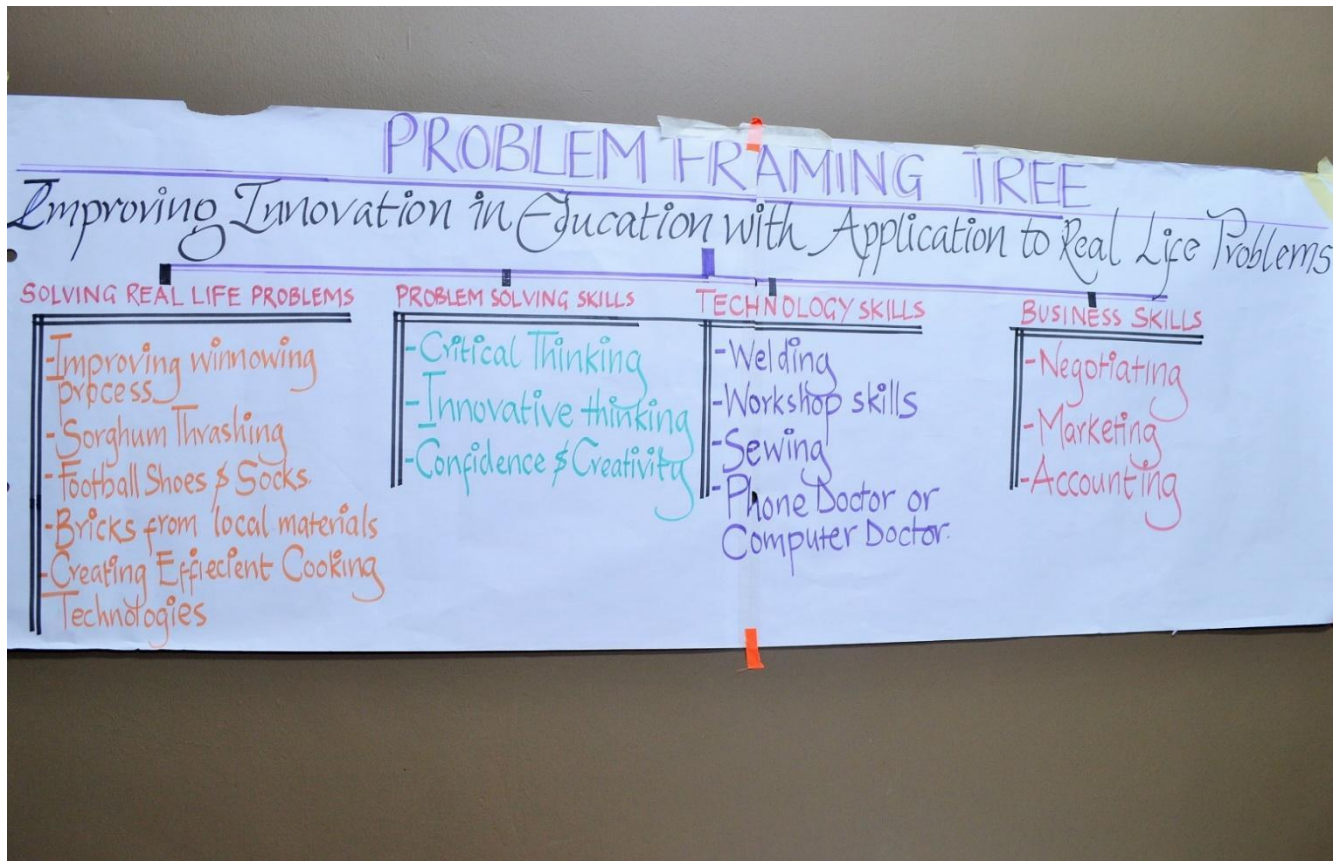 PROBLEM FRAMING TREE
Improving Innovation in Education with Application to Real Life Problems
SOLVING REAL LIFE PROBLEMS
-Improving winnowing
process
-Sorghum Thrashing
-Football Shoes & Socks.
-Bricks from local materials
-Creating Effiecient Cooking
Technologies
PROBLEM SOLVING SKILLS
-Critical Thinking
-Innovative thinking
-Confidence & Creativity
TECHNOLOGY SKILLS
-Welding
-Workshop skills
-Sewing
-Phone Doctor or
Computer Doctor.
BUSINESS SKILLS
-Negotiating
-Marketing
-Accounting